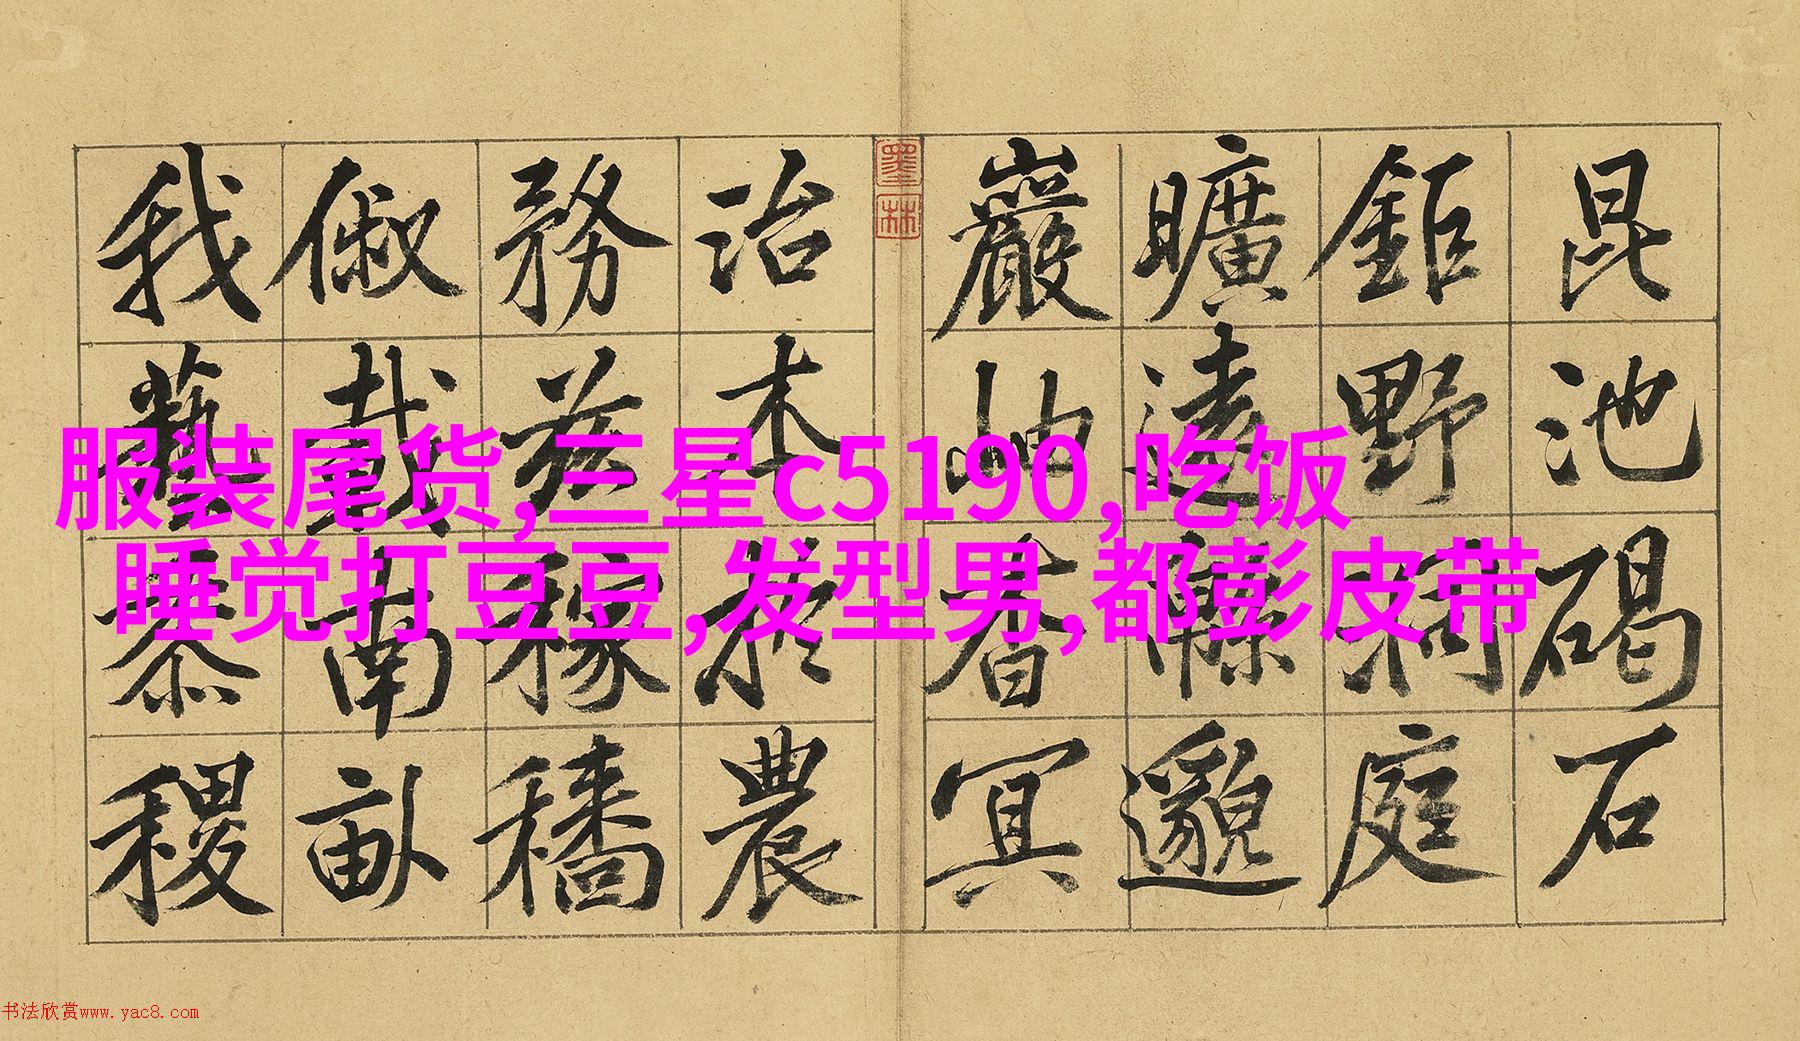 昆池碣石
鉅野洞庭
曠遠緜邈
巖岫杳冥
墨林
治本於農
務茲稼穡
俶載南畝
我藝黍稷
服装尾货,三星c5190,吃饭
睡觉打豆豆,发型男,都彭皮带
书法欣赏www.yac8.com